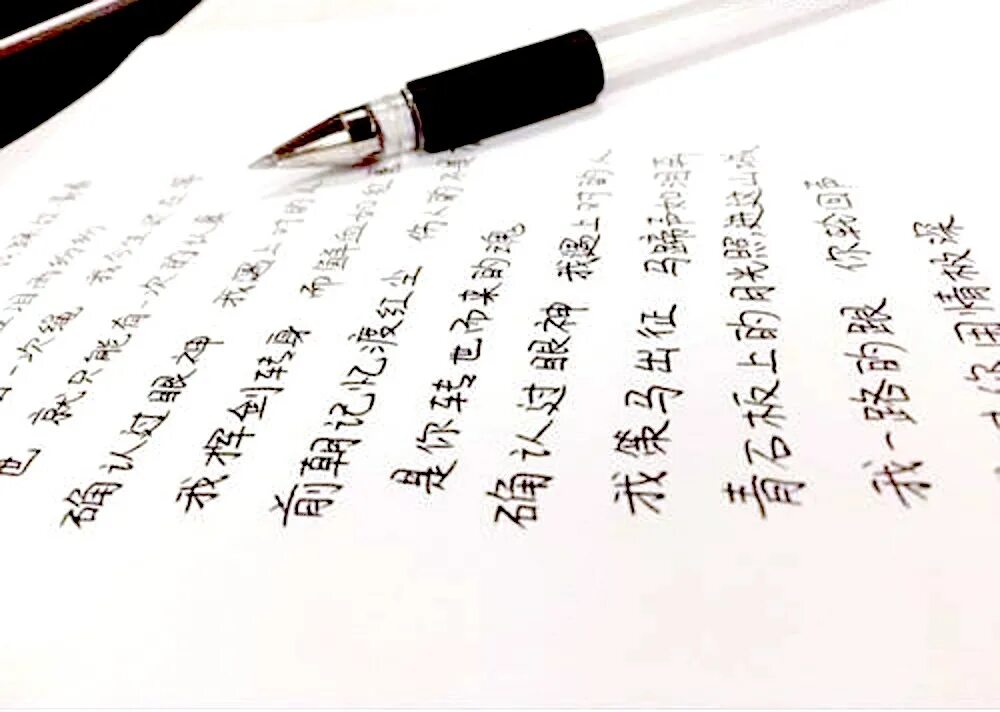 一次绳 我今生还在等
就只能有一次的认真
确认过眼神 我遇上对的人
我挥剑转身 而鲜血如红
前朝记忆渡红尘 伤人的
是你转世而来的魂
确认过眼神 我遇上对的人
我策马出征 马蹄声如泪奔
青石板上的月光照进这山城
我一路的跟 你轮回声
你用情极深